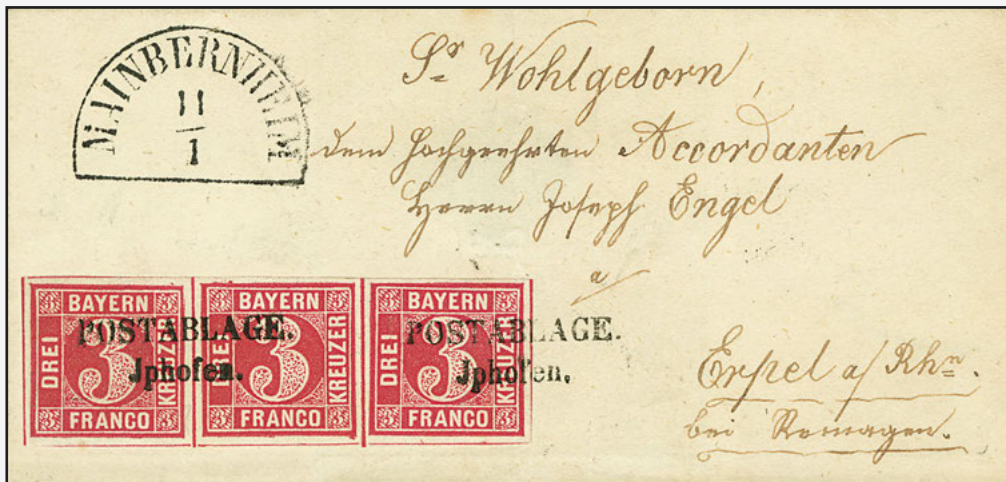 MAINBERNHEIM
11
1
Sr Wohlgeborn,
dem hochgeehrten Accordanten
Herrn Joseph Engel
a/
Erpel a/Rhn.
bei Remagen.
BAYERN
DREI
3
KREUZER
FRANCO
BAYERN
DREI
3
KREUZER
FRANCO
BAYERN
DREI
3
KREUZER
FRANCO
POSTABLAGE.
Jphofen.
POSTABLAGE.
Jphofen.